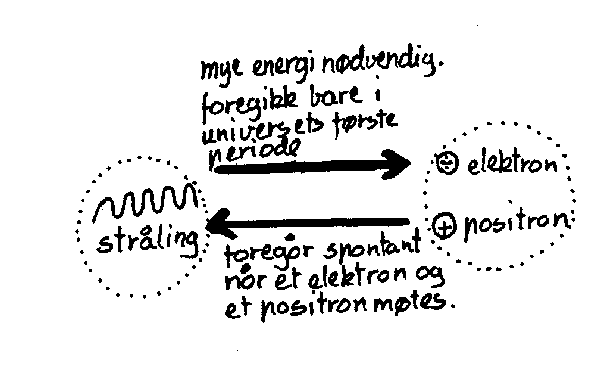 mye energi nødvendig.
foregikk bare i
universets første
periode
elektron
stråling
positron
foregår spontant
når et elektron og
et positron møtes.